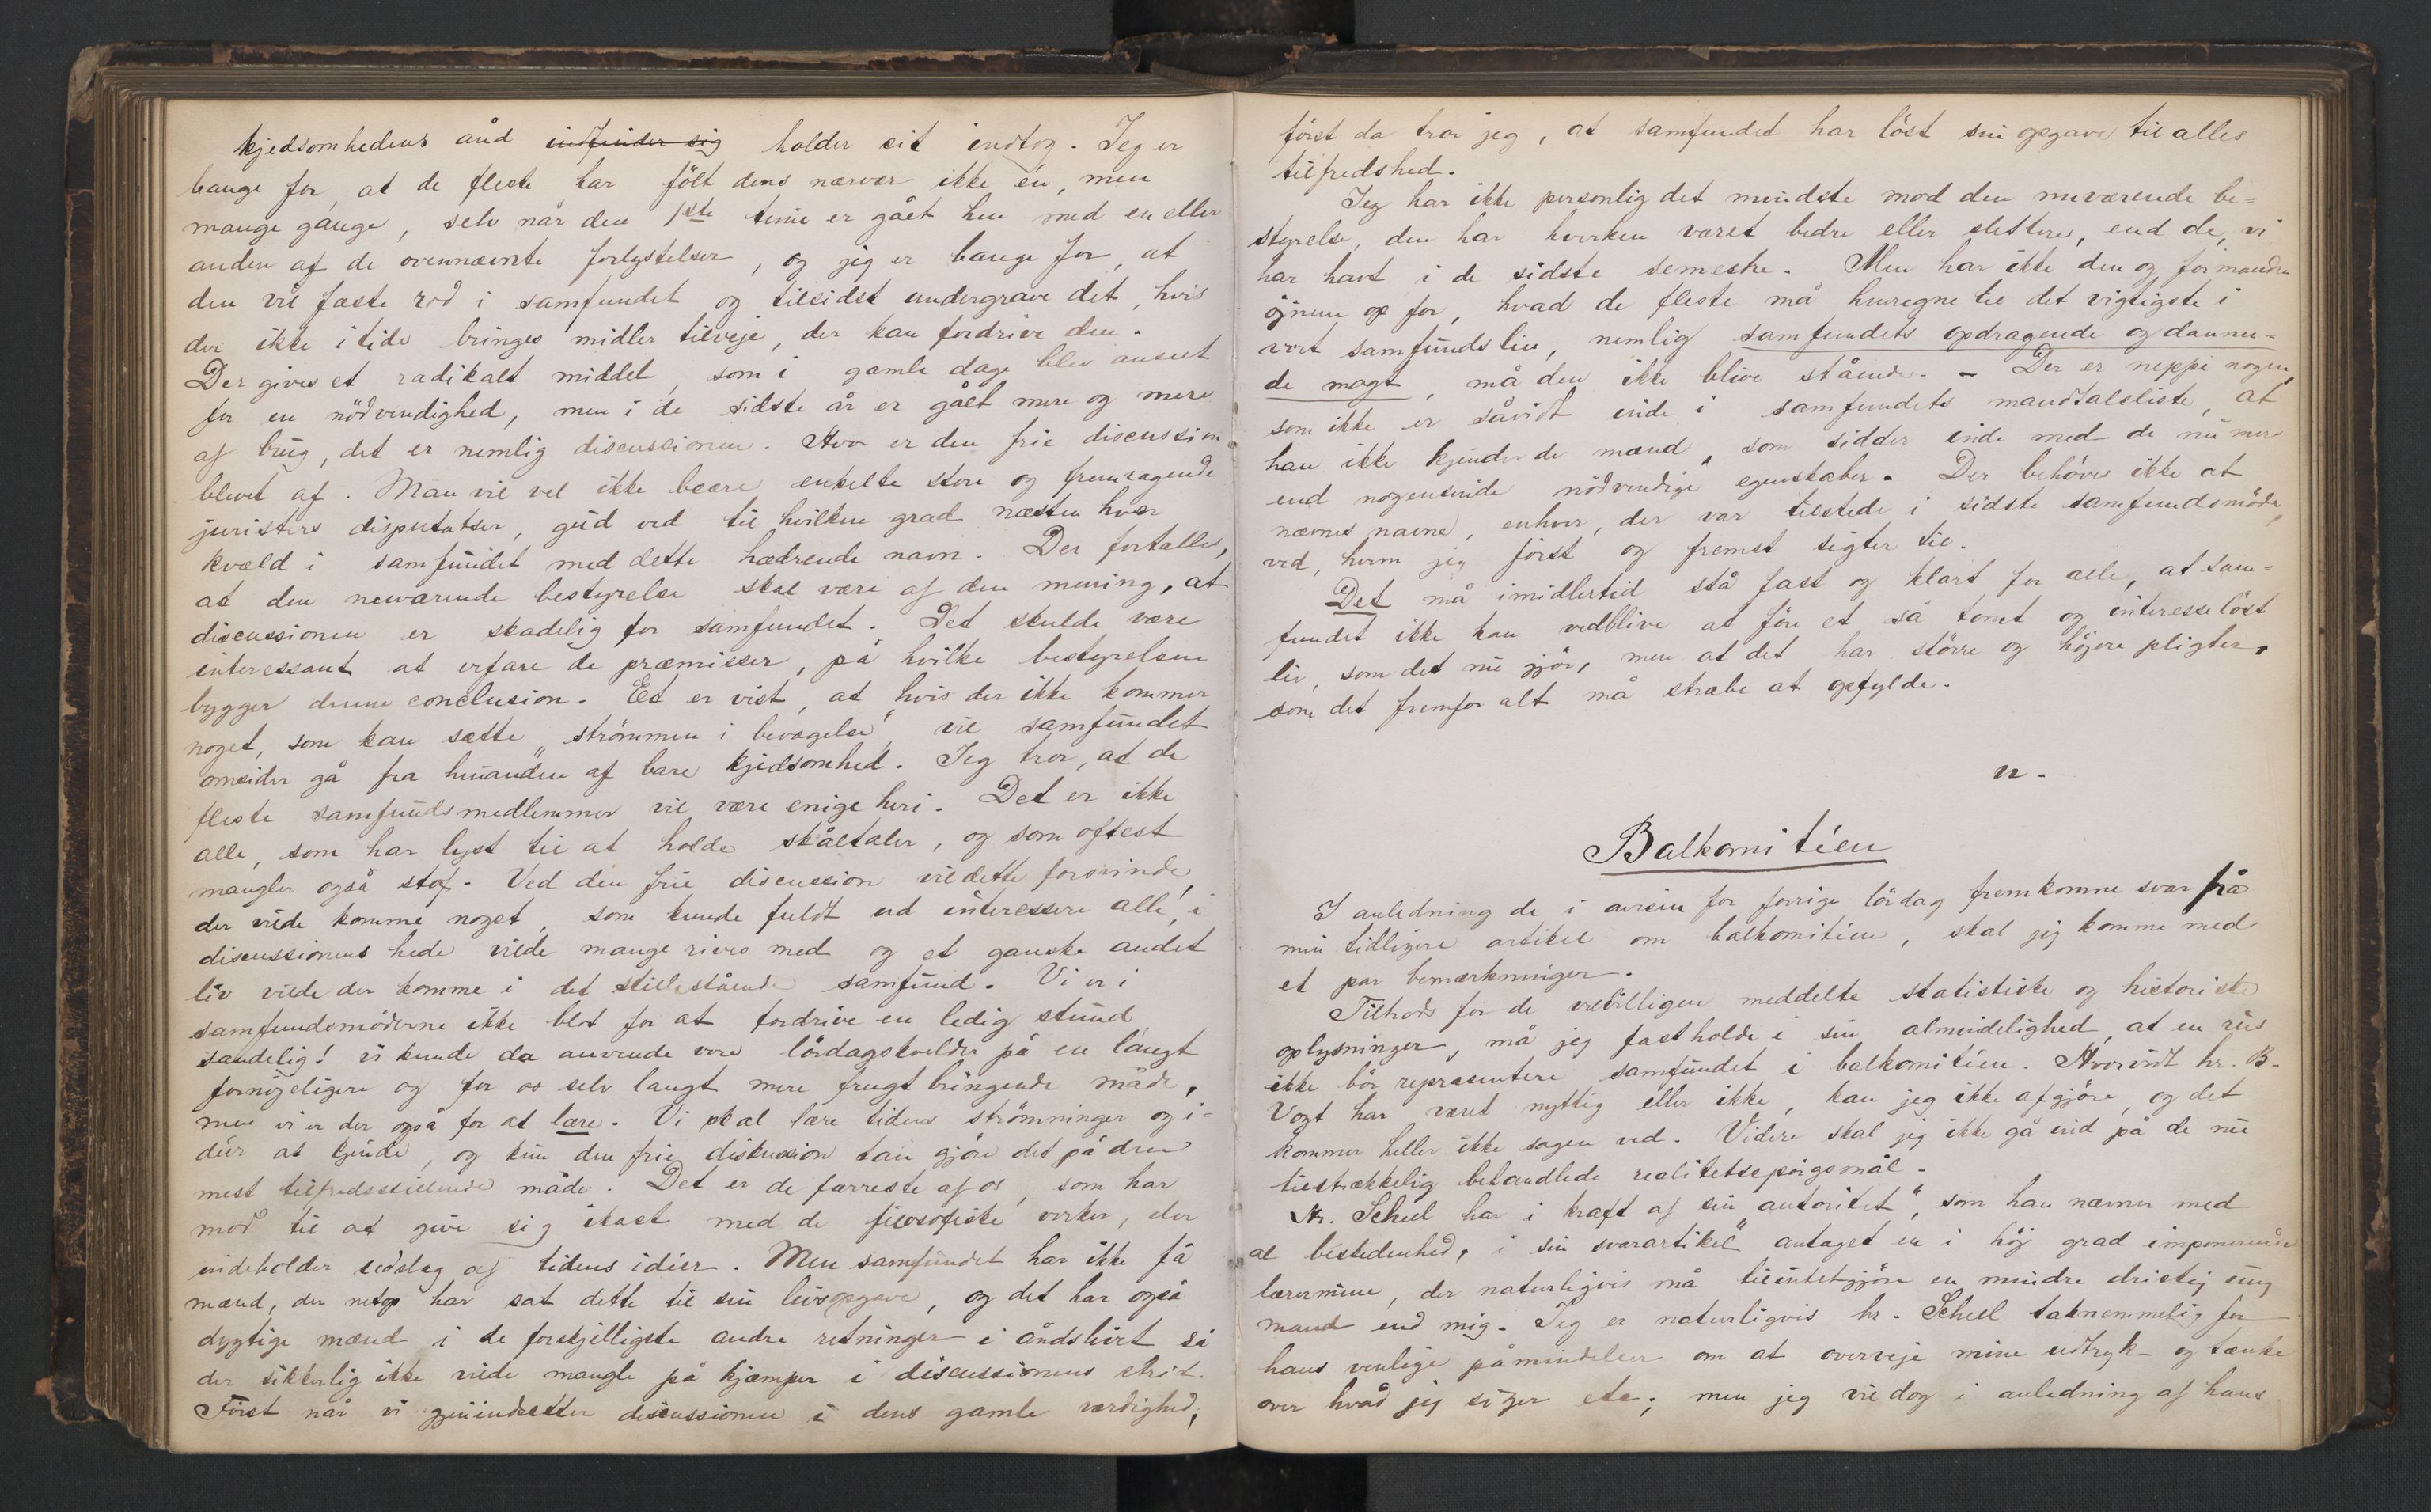 kjedsomhedens ånd indfinder sig holder sit indtog. Jeg er
bange for, at de fleste har fölt dens nærvær ikke én, men
mange gange, selv når den 1ste time er gået hen med en eller
anden af de ovennævnte forlystelser, og jeg er bange for, at
den vil fæste rod i samfundet og tilsidst undergrave det, hvis
der ikke itide bringes midler tilveje, der kan fordrive den.
Der gives et radikalt middel, som i gamle dage blev anseet
for en nödvendighed, men i de sidste år er gået mere og mere
af brug, det er nemlig discussionen. Hvor er den frie discussion
blevet af. Man vil vel ikke beære enkelte store og fremragende
juristers disputatser, gud ved til hvilken grad næsten hver
kvæld i samfundet med dette hædrende navn. Der fortælles,
at den nuværende bestyrelse skal være af den mening, at
discussionen er skadelig for samfundet. Det skulde være
interessant at erfare de præmisser, på hvilke bestyrelsen
bygger denne conclusion. Et er vist, at hvis der ikke kommer
noget, som kan sætte „strömmen i bevægelse“ vil samfundet
omsider gå fra hinanden af bare kjedsomhed. Jeg tror, at de
fleste samfundsmedlemmer vil være enige heri. Det er ikke
alle, som har lyst til at holde skåltaler, og som oftest
mangler også stof. Ved den frie discussion vil dette forsvinde,
der vilde komme noget, som kunde fuldt ud interessere alle, i
discussionens hede vilde mange rives med og et ganske andet
liv vilde der komme i det stillestående samfund. Vi er i
samfundsmöderne ikke blot for at fordrive en ledig stund,
sandelig! vi kunde da anvende vore lördagskvelder på en langt
fornöjeligere og for os selv langt mere frugtbringende måde,
men vi er der også for at lære. Vi skal lære tidens strömninger og i-
déer at kjende, og kun den frie diskussion kan gjöre det på den
mest tilfredsstillende måde. Det er de færreste af os, som har
mod til at give sig ikast med de filosofiske verker, der
indeholder udslag af tidens idéer. Men samfundet har ikke få
mænd, der netop har sat dette til sin livsopgave, og det har også
dygtige mænd i de forskjelligste andre retninger i åndslivet så
der sikkerlig ikke vilde mangle på kjæmper i discussionens strid.
Först når vi gjenindsætter discussionen i dens gamle værdighed,
först da tror jeg, at samfundet har löst sin opgave til alles
tilfredshed.
Jeg har ikke personlig det mindste mod den nuværende be-
styrelse, den har hverken været bedre eller slettere, end de, vi
har havt i de sidste semestre. Men har ikke den og formanden
öjnene op for, hvad de fleste må henregne til det vigtigste i
vort samfundsliv, nemlig samfundets opdragende og dannen-
de magt, må den ikke blive stående. - Der er neppe nogen,
som ikke er såvidt inde i samfundets mandtalsliste, at
han ikke kjender de mænd, som sidder inde med de nu mere
end nogensinde nödvendige egenskaber. Der behöves ikke at
nævnes navne, enhver, der var tilstede i sidste samfundsmöde,
ved, hvem jeg först og fremst sigter til.
Det må imidlertid stå fast og klart for alle, at sam-
fundet ikke kan vedblive at före et så tomt og interesselöst
liv, som det nu gjör, men at det har större og höjere pligter,
som det fremfor alt må stræbe at opfylde.
n.
Balkomitéen
I anledning de i avisen for forrige lördag fremkomne svar på
min tidligere artikel om balkomitéen, skal jeg komme med
et par bemærkninger.
Tiltrods for de velvilligen meddelte statistiske og historiske
oplysninger, må jeg fastholde i sin almindelighed, at en rus
ikke bör repræsentere samfundet i balkomitéen. Hvorvidt hr. B.
Vogt har været nyttig eller ikke, kan jeg ikke afgjöre, og det
kommer heller ikke sagen ved. Videre skal jeg ikke gå ind på de nu
tilstrækkelig behandlede realitetsspörgsmål.
Hr. Scheel har i kraft af sin autoritet“, som han nævner med
al beskedenhed, i sin svarartikel“ antaget en i höj grad imponerende
lærermine, der naturligvis må tilintetgjöre en mindre dristig ung
mand end mig. Jeg er naturligvis hr. Scheel taknemmelig for
hans venlige påmindelser om at overveje mine udtryk og tænke
over hvad jeg siger etc; men jeg vil dog i anledning af hans